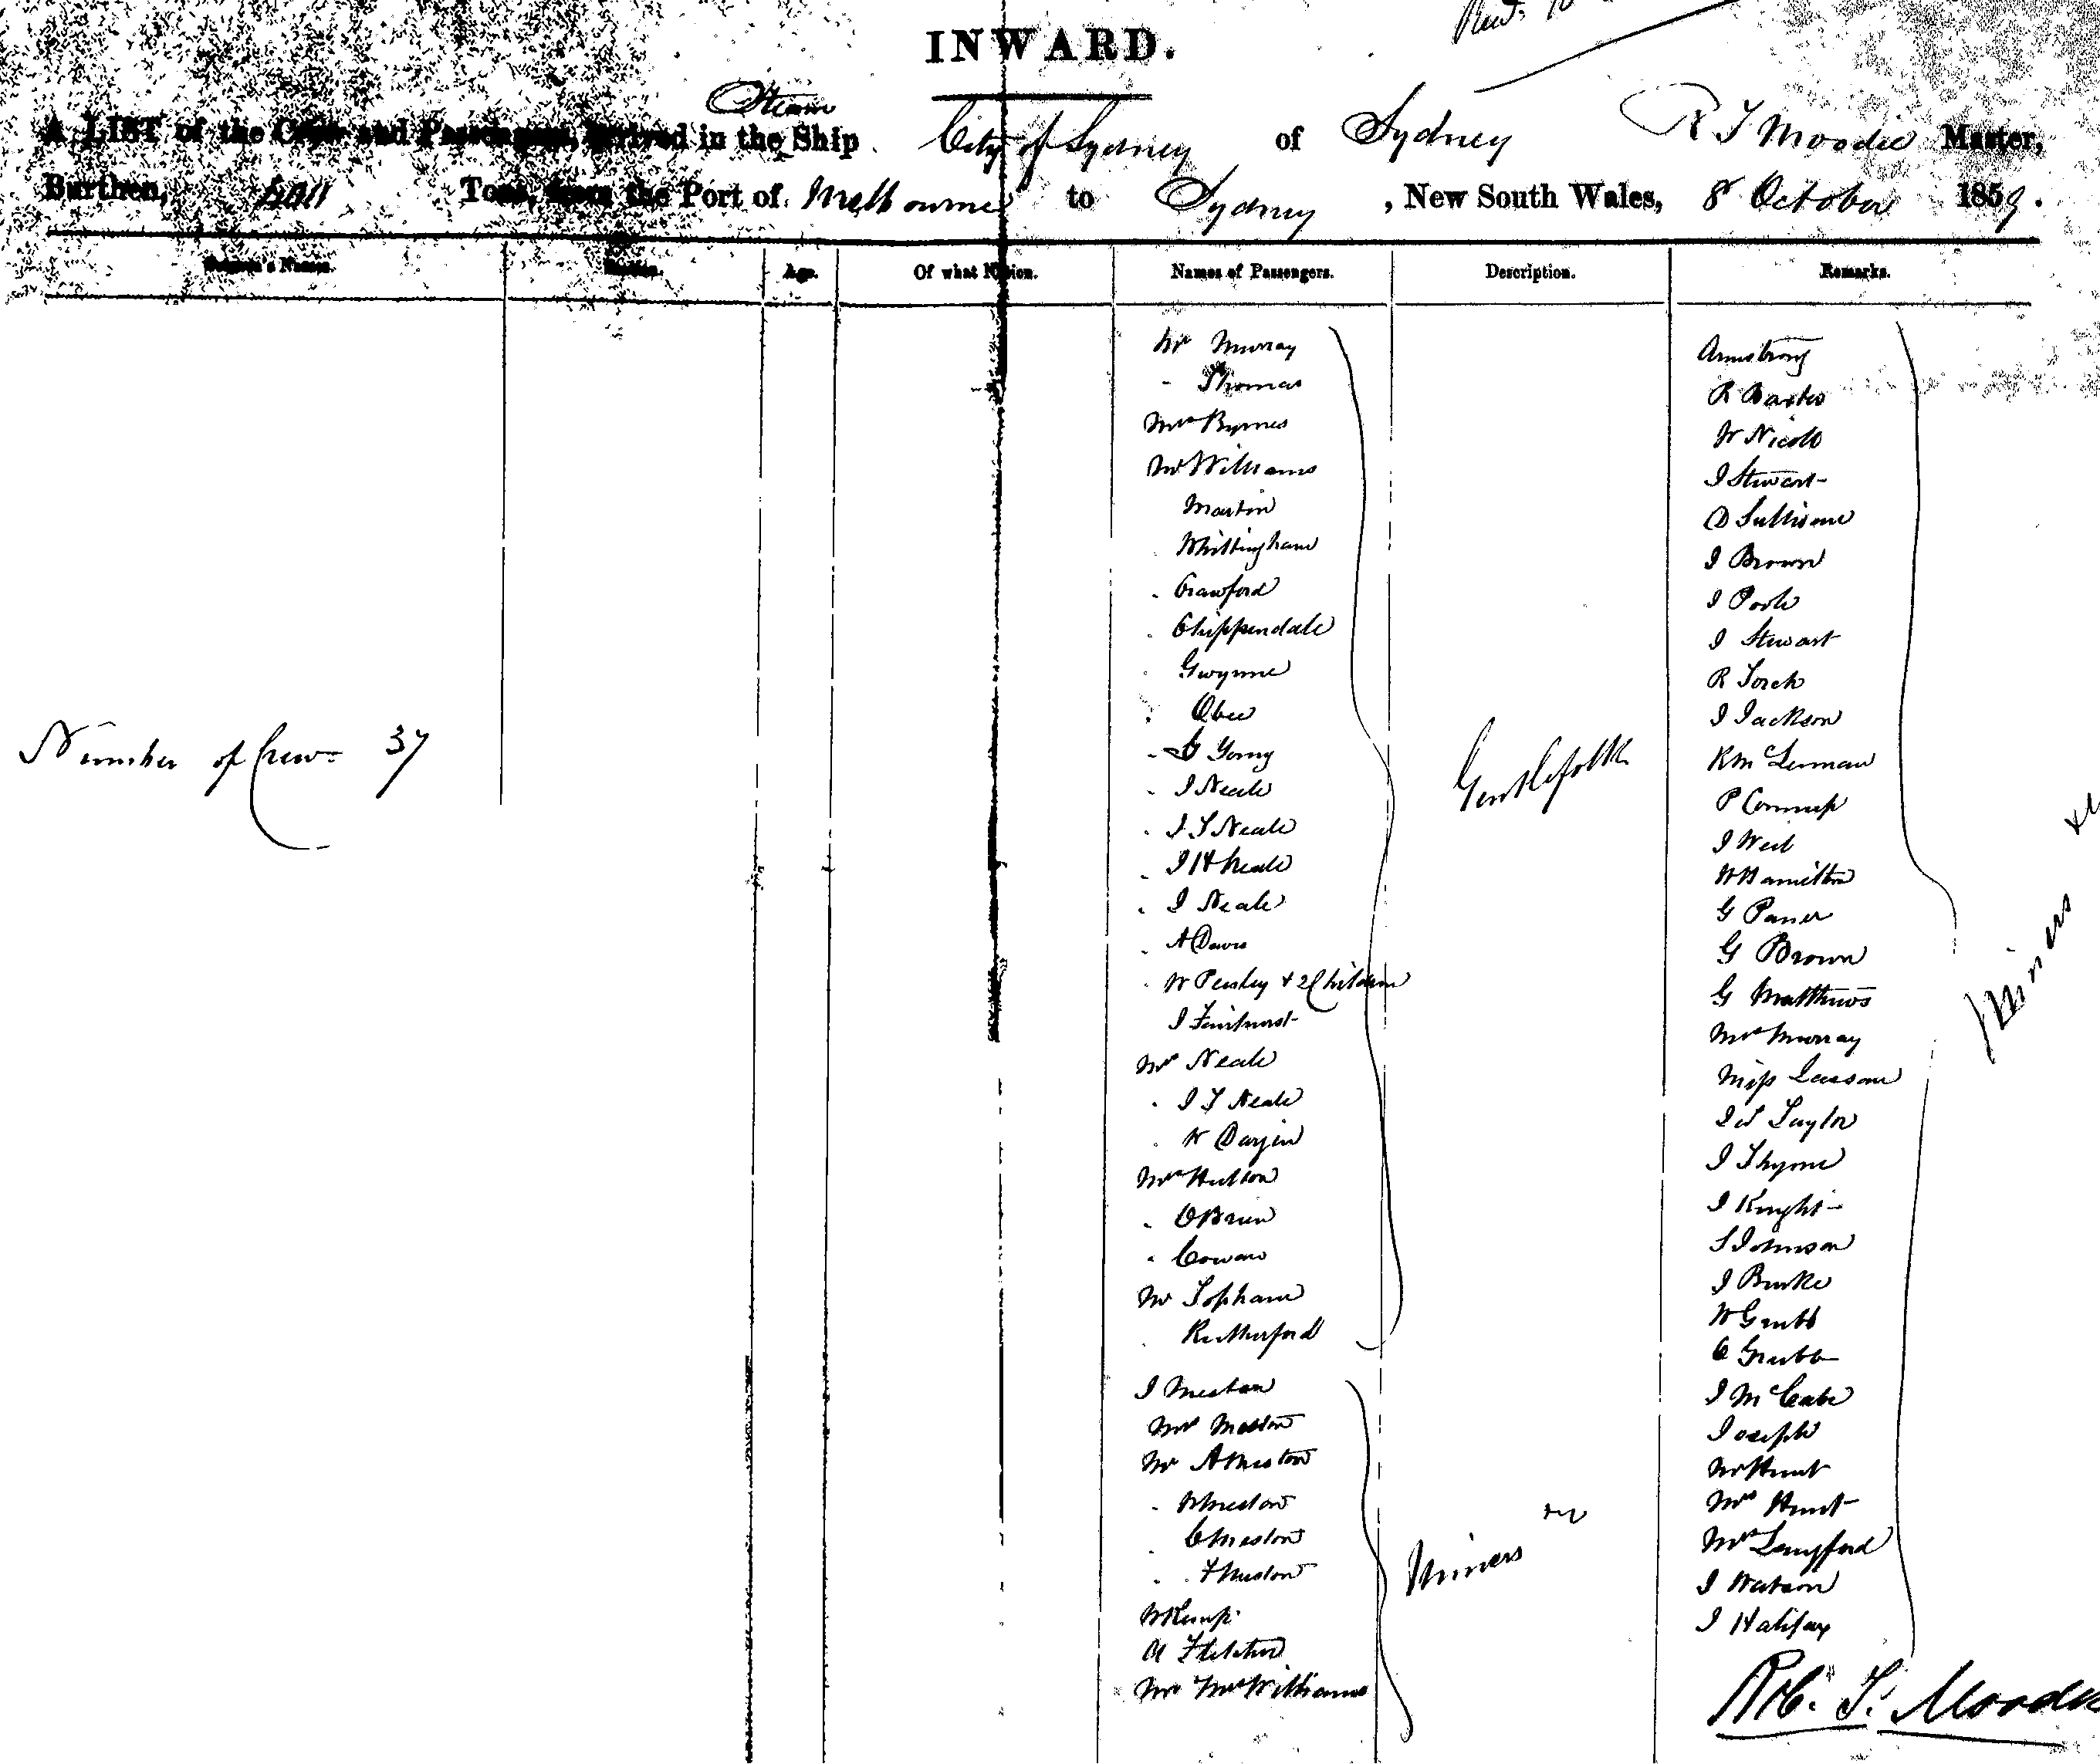 INWARD.
Steam
A LIST of the Crew and Passengers, arrived in the Ship City of Sydney of Sydney R T Moodie Master,
Burthen, Tons, from the Port of Melbourne to Sydney, New South Wales, 8 October 1859.
Seamen's Names. Station. Age. Of what Nation. Names of Passengers. Description. Remarks.
Mr Murray
- Thomas
Mrs Byrnes
Mr Williams
Martin
Whittingham
. Crawford
. Chippendale
. Gwynne
. Obee
- G Young
. I Neale
. I S Neale
. I H Neale
. I Neale
. A Davis
. W Pensley + 2 Children
I Fairhurst
Mr Neale
. I T Neale
. W Dargin
Mrs Hutton
. OBrien
. Cowan
Mr Topham
. Rutherford
Gentlefolk
I Meston
Mrs Meston
Mr A Meston
. W Meston
. C Meston
. F Meston
W Kemp
A Fletcher
Mr McWilliams
Miners
Number of Crew 37
Armstrong
R Baxter
W Nicoll
I Stewart
D Sullivan
I Brown
I Poole
I Stewart
R Torck
I Jackson
R McLennan
P
I Weil
W Hamilton
G
G Brown
G Matthews
Mrs Murray
Miss Lawson
Taylor
I Thyme
I Knight
S Johnson
I Burke
W Grubb
C Grubb
I McCabe
Joseph
Mr Hunt
Mrs Hunt
Mrs Langford
I Watson
I Halifax
Miners
Rob. T. Moodie